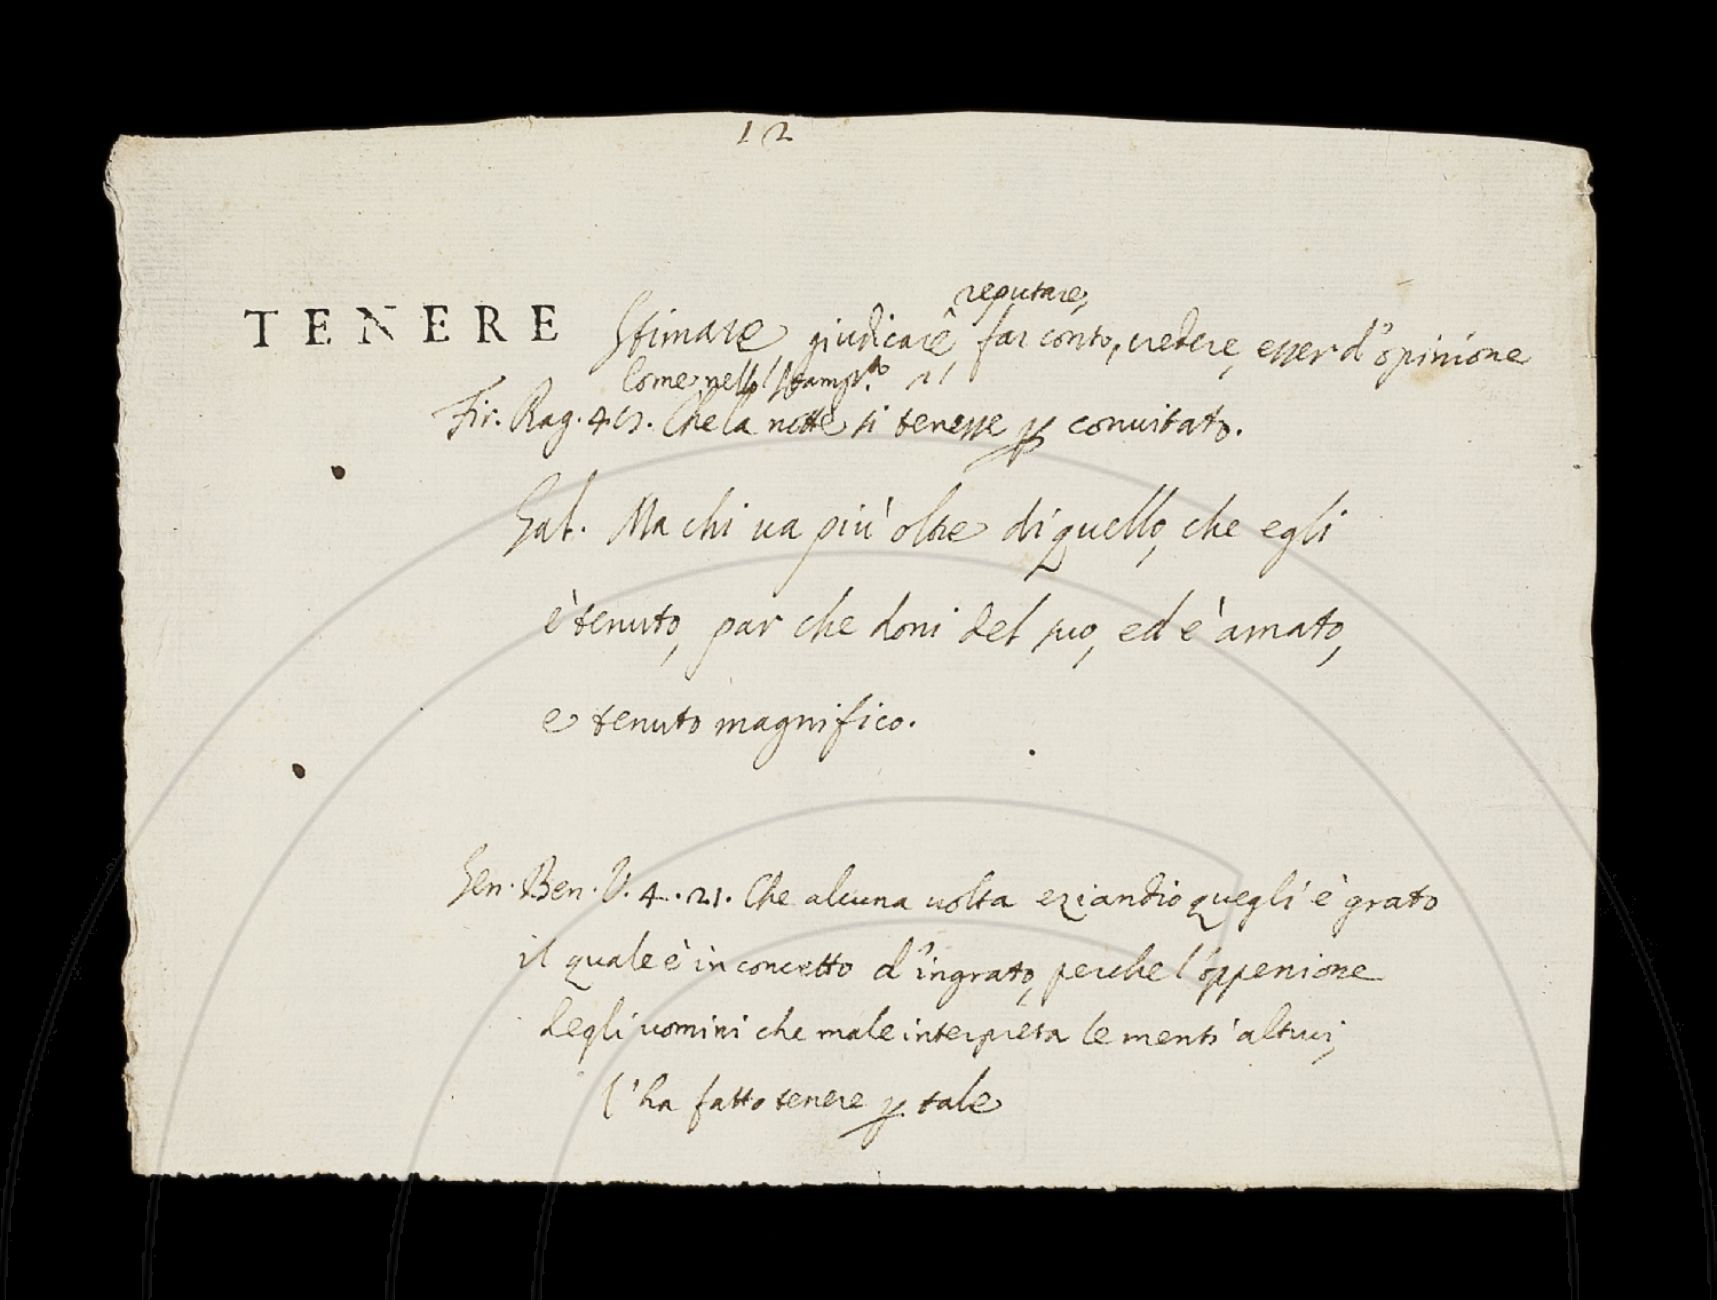 12
reputare,
TENERE Stimare, giudicare, far conto, credere, esser d'opinione
Come nello
Fir. Rag. Che la notte si tenesse ꝑ convitato.
Gal. Ma chi va più oltre di quello, che egli
è tenuto, par che doni del suo, ed è amato,
e tenuto magnifico.
Sen. Ben. V. 4. 21. Che alcuna volta eziandio quegli è grato
il quale è in concetto d'ingrato, perche l'oppenione
degli uomini che male interpreta le menti altrui,
l'ha fatto tenere ꝑ tale